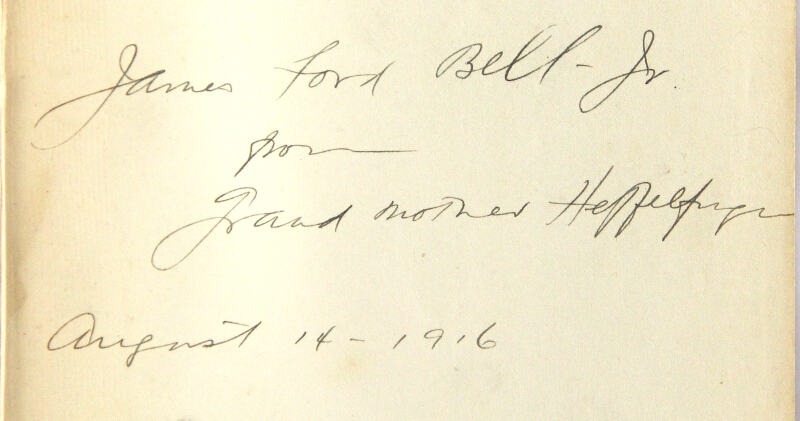 James Ford Bell - Jr.
from
Grand mother Heffelfinger
August 14 - 1916